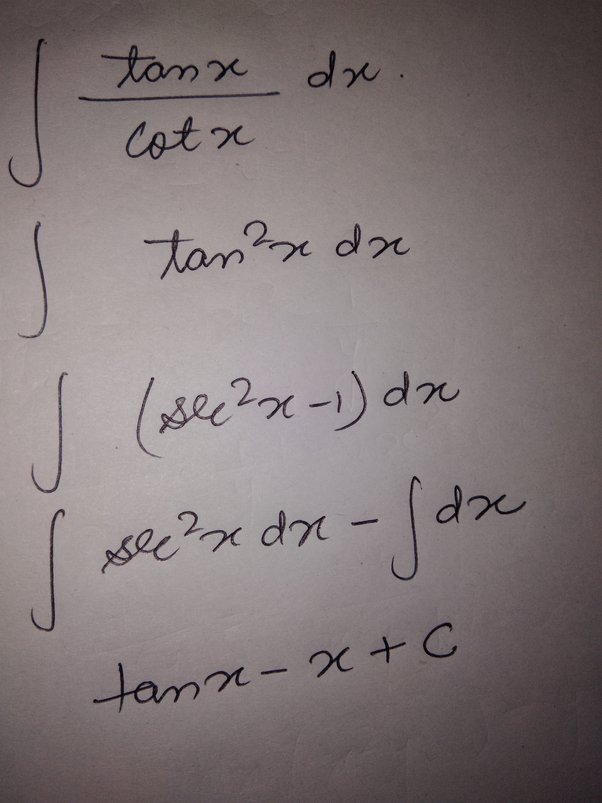 ∫ tanx / cotx dx.
∫ tan²x dx
∫ (sec²x-1) dx
∫ sec²x dx - ∫ dx
tanx - x + C